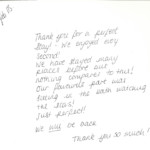 Thank you for a perfect
stay - we enjoyed every
second!
We have stayed many
places before but
nothing compares to this!
Our favourite part was
being in the bath watching
the stars!
Just perfect!
We will be back
Thank you so much!